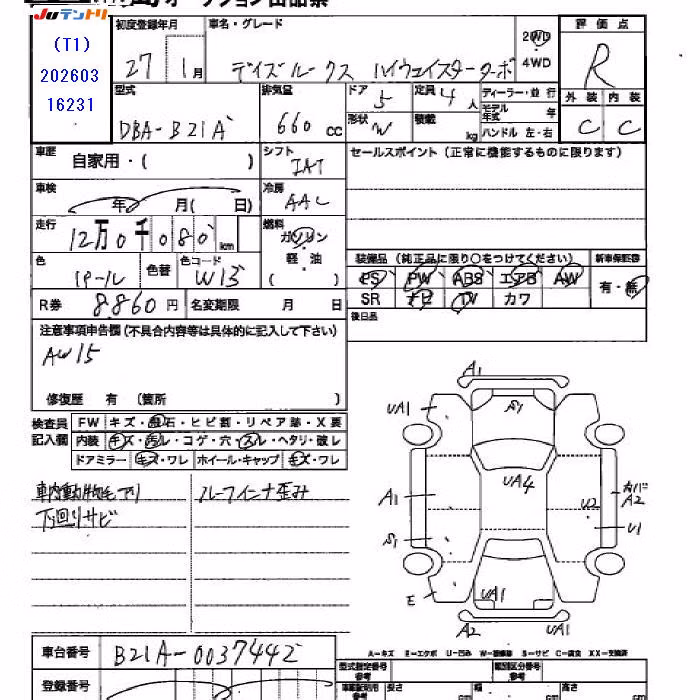 オークション出品票
JUテントリ
(T1)
202603
16231
初度登録年月
27 1月
車名・グレード
デイズルークス ハイウェイスターターボ
2WD
4WD
評価点
R
外装 内装
C C
型式
DBA-B21A
排気量
660 cc
ドア 5
形状 W
定員 4人
積載 kg
ディーラー・並行
モデル年式 年
ハンドル 左・右
車歴
自家用・( )
シフト
IAT
セールスポイント(正常に機能するものに限ります)
車検
年 月( 日)
冷房
AAC
走行
12万0千080 km
燃料
ガソリン
軽・油
( )
色
パール
色替
色コード
W13
装備品(純正品に限り○をつけてください)
新車保証書
PS PW ABS エアB AW
SR ナビ TV カワ
有・無
R券 8.860円
名変期限 月 日
後日品
注意事項申告欄(不具合内容等は具体的に記入して下さい)
AW15
修復歴 有 (箇所 )
検査員
記入欄
FW キズ・飛石・ヒビ割・リペア跡・X要
内装 キズ・汚レ・コゲ・穴・スレ・ヘタリ・破レ
ドアミラー キズ・ワレ ホイール・キャップ キズ・ワレ
車内動物毛アリ
下回りサビ
ルーフインナ歪み
A1
UA1
S1
UA4
A1
U2
カバ
A2
U1
S1
E
UA1
A2
A1
A-キズ E-エクボ U-凹み W-補修跡 S-サビ C-腐食 XX-交換済
車台番号
B21A-0037442
登録番号
型式指定番号
参考
類別区分番号
参考
車検証明用
参考
長さ cm
幅 cm
高さ cm